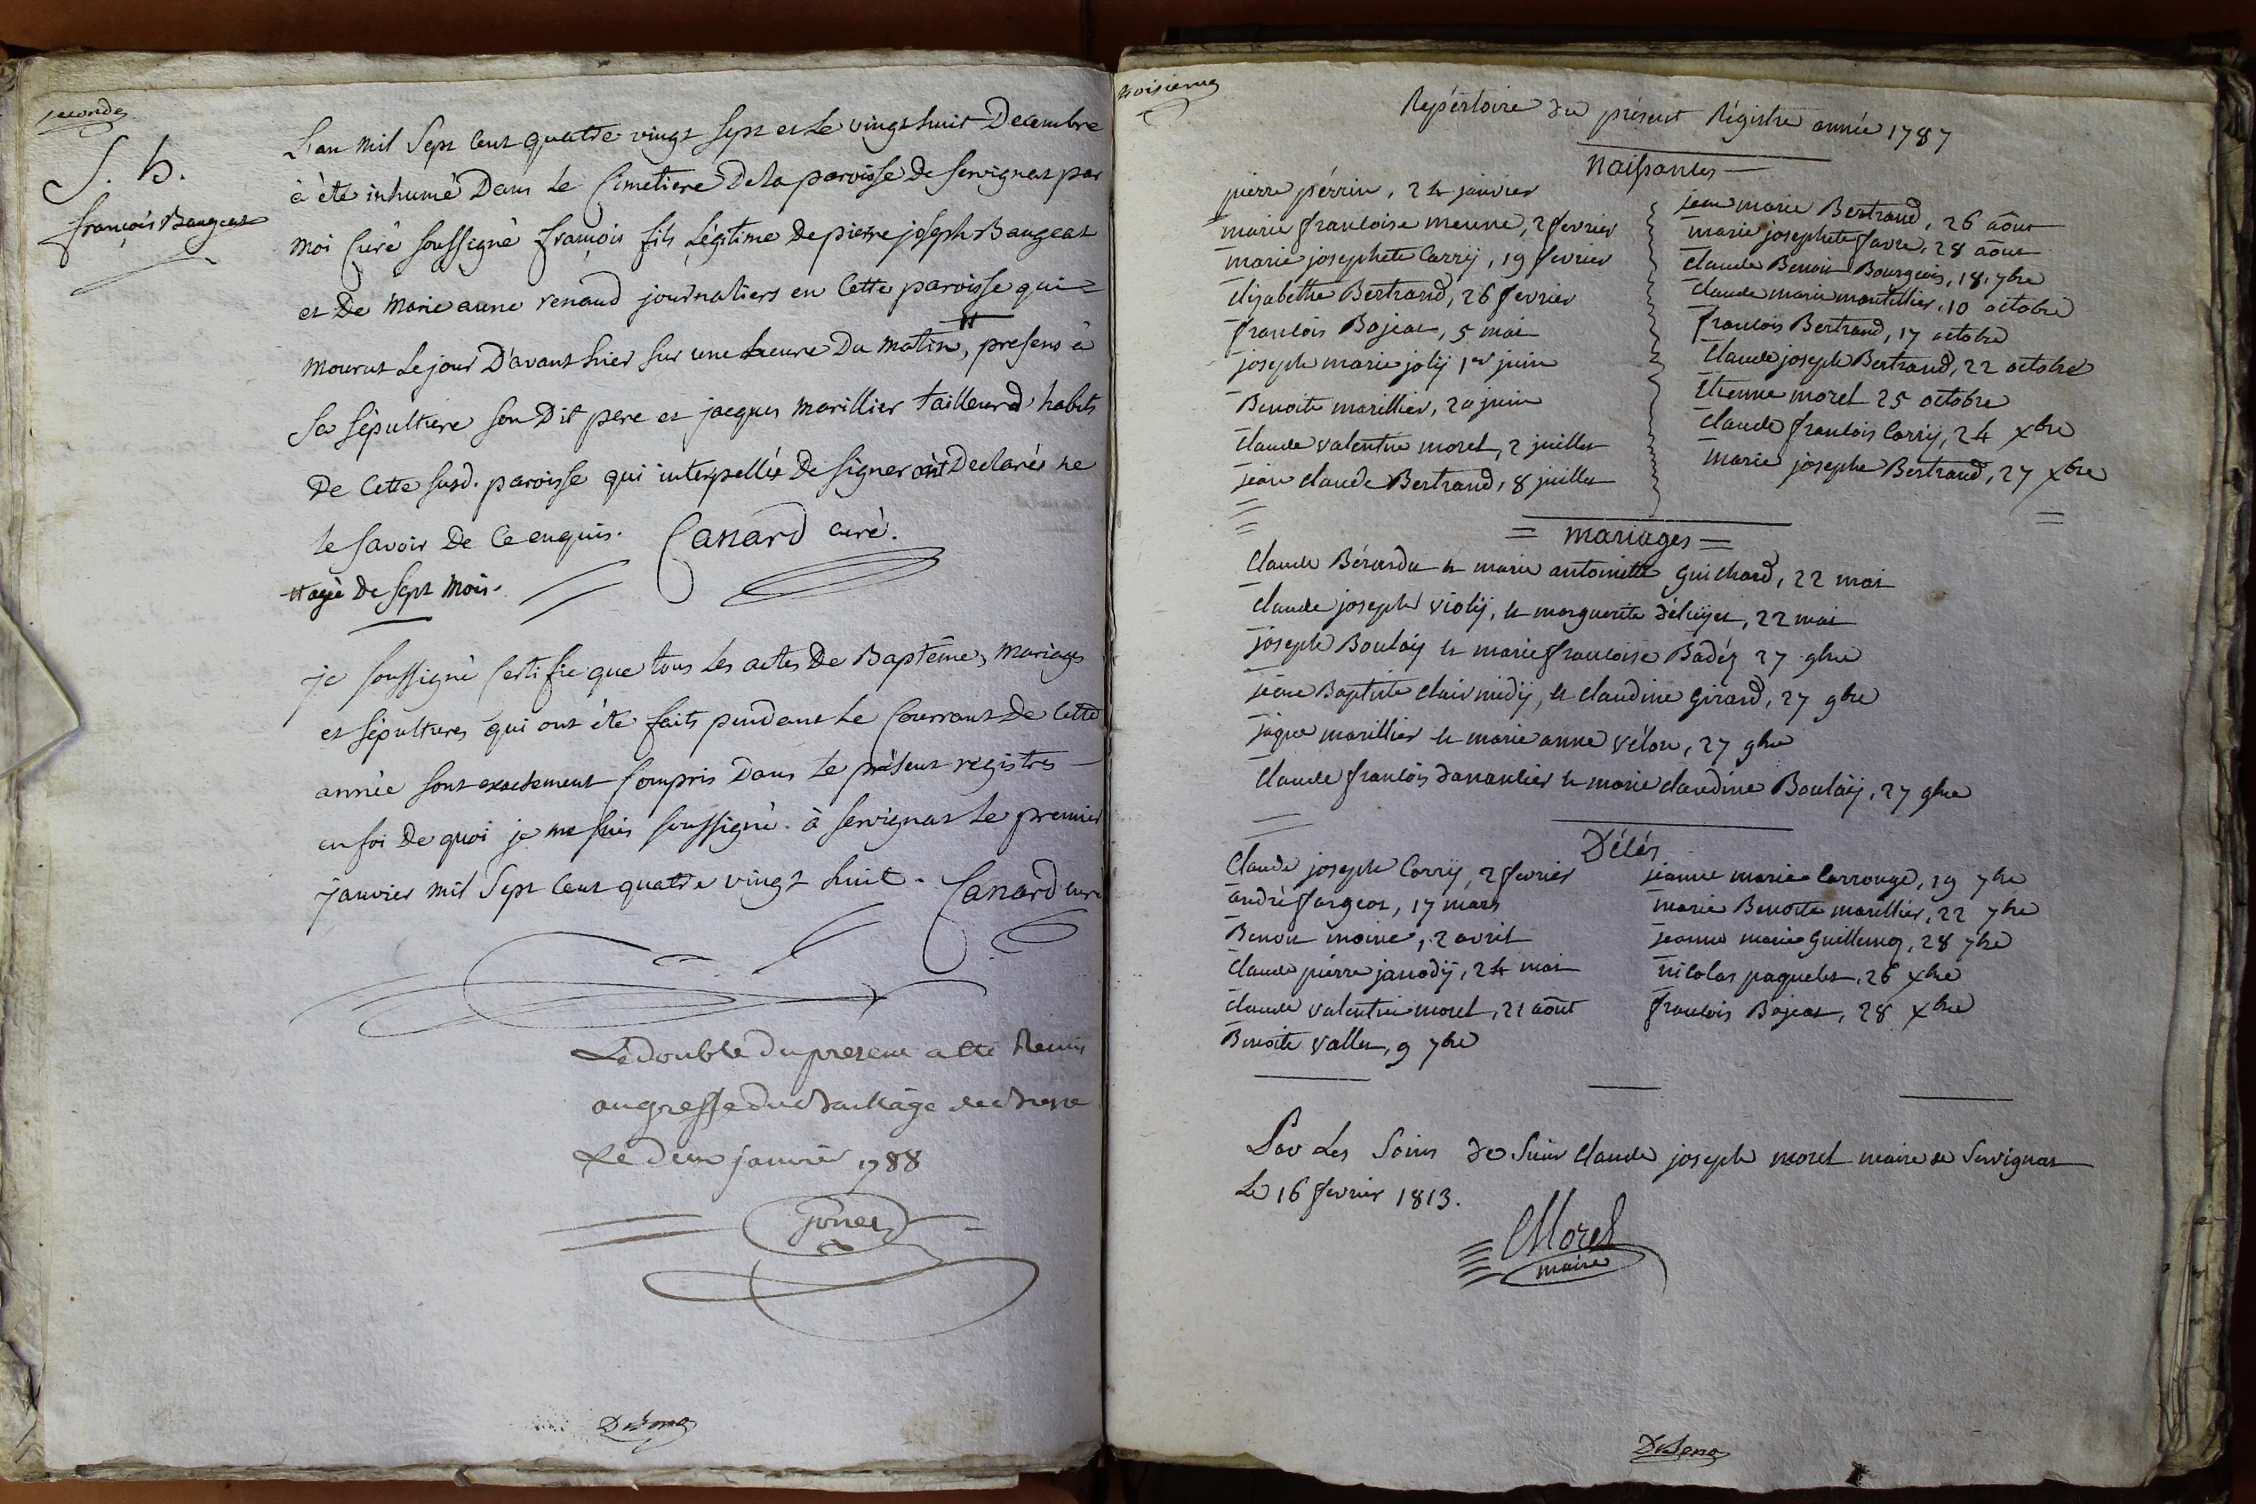 seconde
S. h.
françois Baugeat
L'an mil Sept Cent quatre vingt Sept et Le vingt huit Decembre
à été inhumé Dans Le Cimetiere De la paroisse De Servignat par
moi Curé soussigné françois fils Légitime De pierre joseph Baugeat
et De Marie anne renaud journaliers en Cette paroisse qui
mourut Le jour D'avant hier sur une heure Du matin, presens à
Sa sépulture son Dit pere et jacques Marillier tailleur d'habits
De Cette susd. paroisse qui interpellés De signer ont Declarés ne
le savoir De Ce enquis. Canard curé.
agé De sept mois.
je soussigné Certifie que tous Les actes De Baptême, Mariages
et sépultures qui ont été faits pendant Le Courrant De Cette
année sont exactement Compris Dans Le présent registres
en foi De quoi je me suis soussigné. à Servignat Le premier
janvier mil Sept Cent quatre vingt huit. Canard curé
Le double du present a été Remis
au greffe du Bailliage de Bresse
Le deux janvier 1788
troisieme
Répértoire du présent Régistre année 1787
Naissances
pierre pérrin, 24 janvier
marie francoise meune, 2 fevrier
marie josephete Carrÿ, 19 fevrier
elizabethe Bertrand, 26 fevrier
francois Bajeat, 5 mai
joseph marie jolÿ 1er juin
Benoite marillier, 20 juin
Claude valentin morel, 2 juillet
jean claude Bertrand, 8 juillet
jean marie Bertrand, 26 aôut
marie josephete favre, 28 aôut
Claude Benoit Bourgeois, 18, 7bre
Claude marie montillier, 10 octobre
francois Bertrand, 17 octobre
Claude joseph Bertrand, 22 octobre
Etienne morel 25 octobre
Claude francois Carrÿ, 24 xbre
marie josephe Bertrand, 27 xbre
= mariages =
Claude Bérardu et marie antoinette Guichard, 22 mai
Claude joseph violÿ, et marguerite 22 mai
joseph Boulaÿ et marie francoise Badéz 27 9bre
jean Baptiste clair midÿ, et claudine Girard, 27 9bre
jaque marillier et marie anne vélon, 27 9bre
Claude francois dananlier et marie claudine Boulaÿ, 27 9bre
Délés
Claude joseph Carrÿ, 2 fevrier
andré fargeot, 17 mars
Benoit moine, 2 avril
Claude pierre janodÿ, 24 mai
Claude valentin morel, 21 aôut
Benoite vallet, 9 7bre
jeanne marie Carrouge, 19 7bre
marie Benoite marillier, 22 7bre
jeanne marie Guillemeq, 28 7bre
Nicolas paquelet, 26 xbre
francois Bajeat, 28 xbre
Par Les Soins de Sieur Claude joseph morel maire de Servignat
Le 16 fevrier 1813.
CMorel
maire